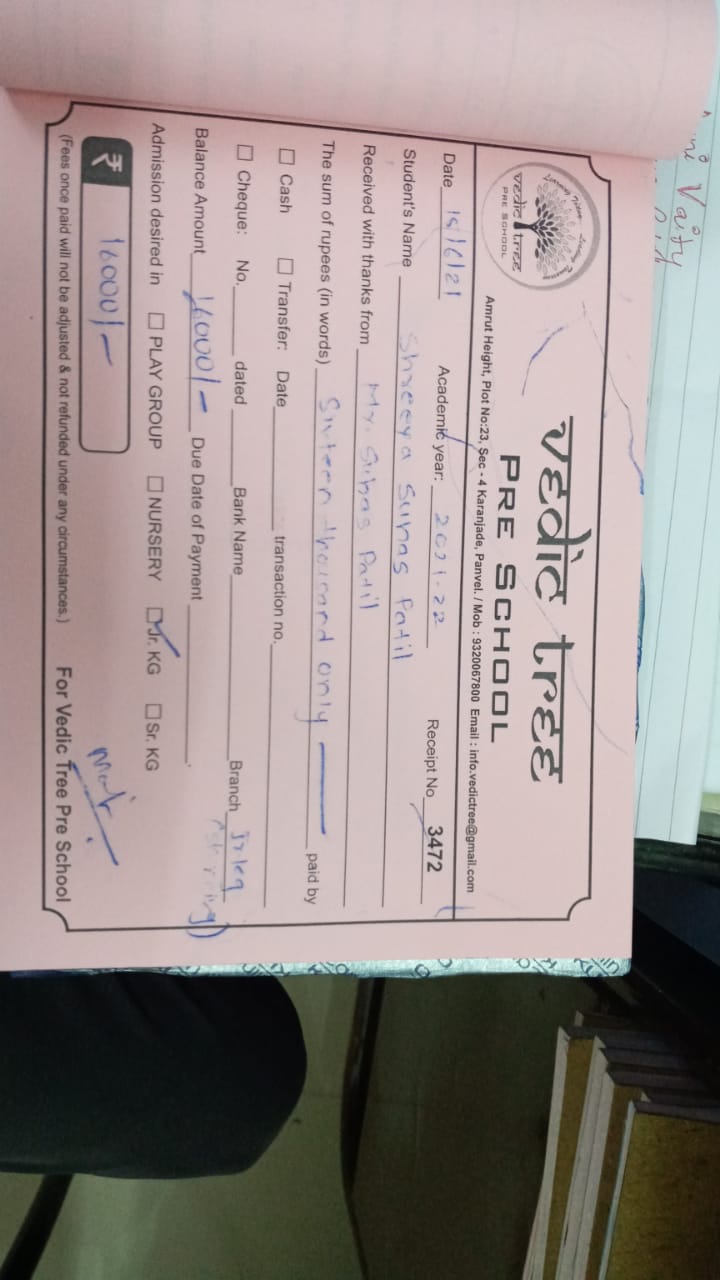 Vaity
vedic tree
PRE SCHOOL
vedic tree
PRE SCHOOL
Amrut Height, Plot No:23, Sec - 4 Karanjade, Panvel. / Mob : 9320067800 Email : info.vedictree@gmail.com
Date 15/6/21 Academic year: 2021-22 Receipt No 3472
Student's Name Shreeya Suhas Patil
Received with thanks from Mr. Suhas Patil
The sum of rupees (in words) Sixteen thousand only paid by
☐ Cash ☐ Transfer: Date transaction no.
☐ Cheque: No. dated Bank Name Branch Jr kg
Balance Amount 16000/- Due Date of Payment
Admission desired in ☐ PLAY GROUP ☐ NURSERY ☑ Jr. KG ☐ Sr. KG
₹ 16000/-
(Fees once paid will not be adjusted & not refunded under any circumstances.) For Vedic Tree Pre School